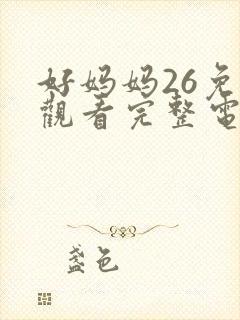 好妈妈26免
觀看完整電
盏色